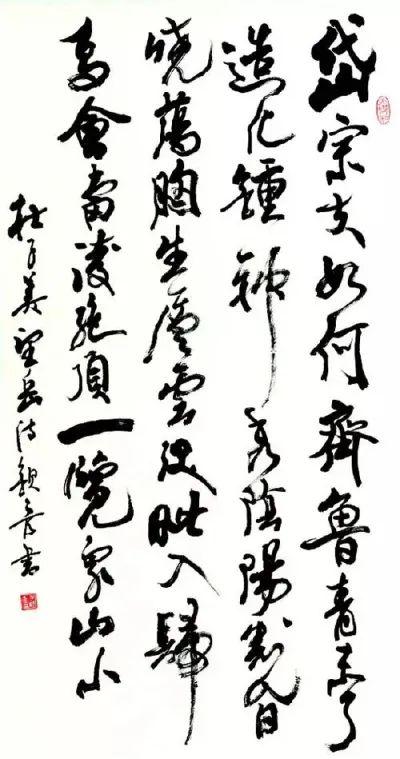 岱宗夫如何齊魯青未了
造化鍾神秀陰陽割昏
曉蕩胸生層雲決眦入歸
鳥會當凌絕頂一覽衆山小
杜子美望岳詩書